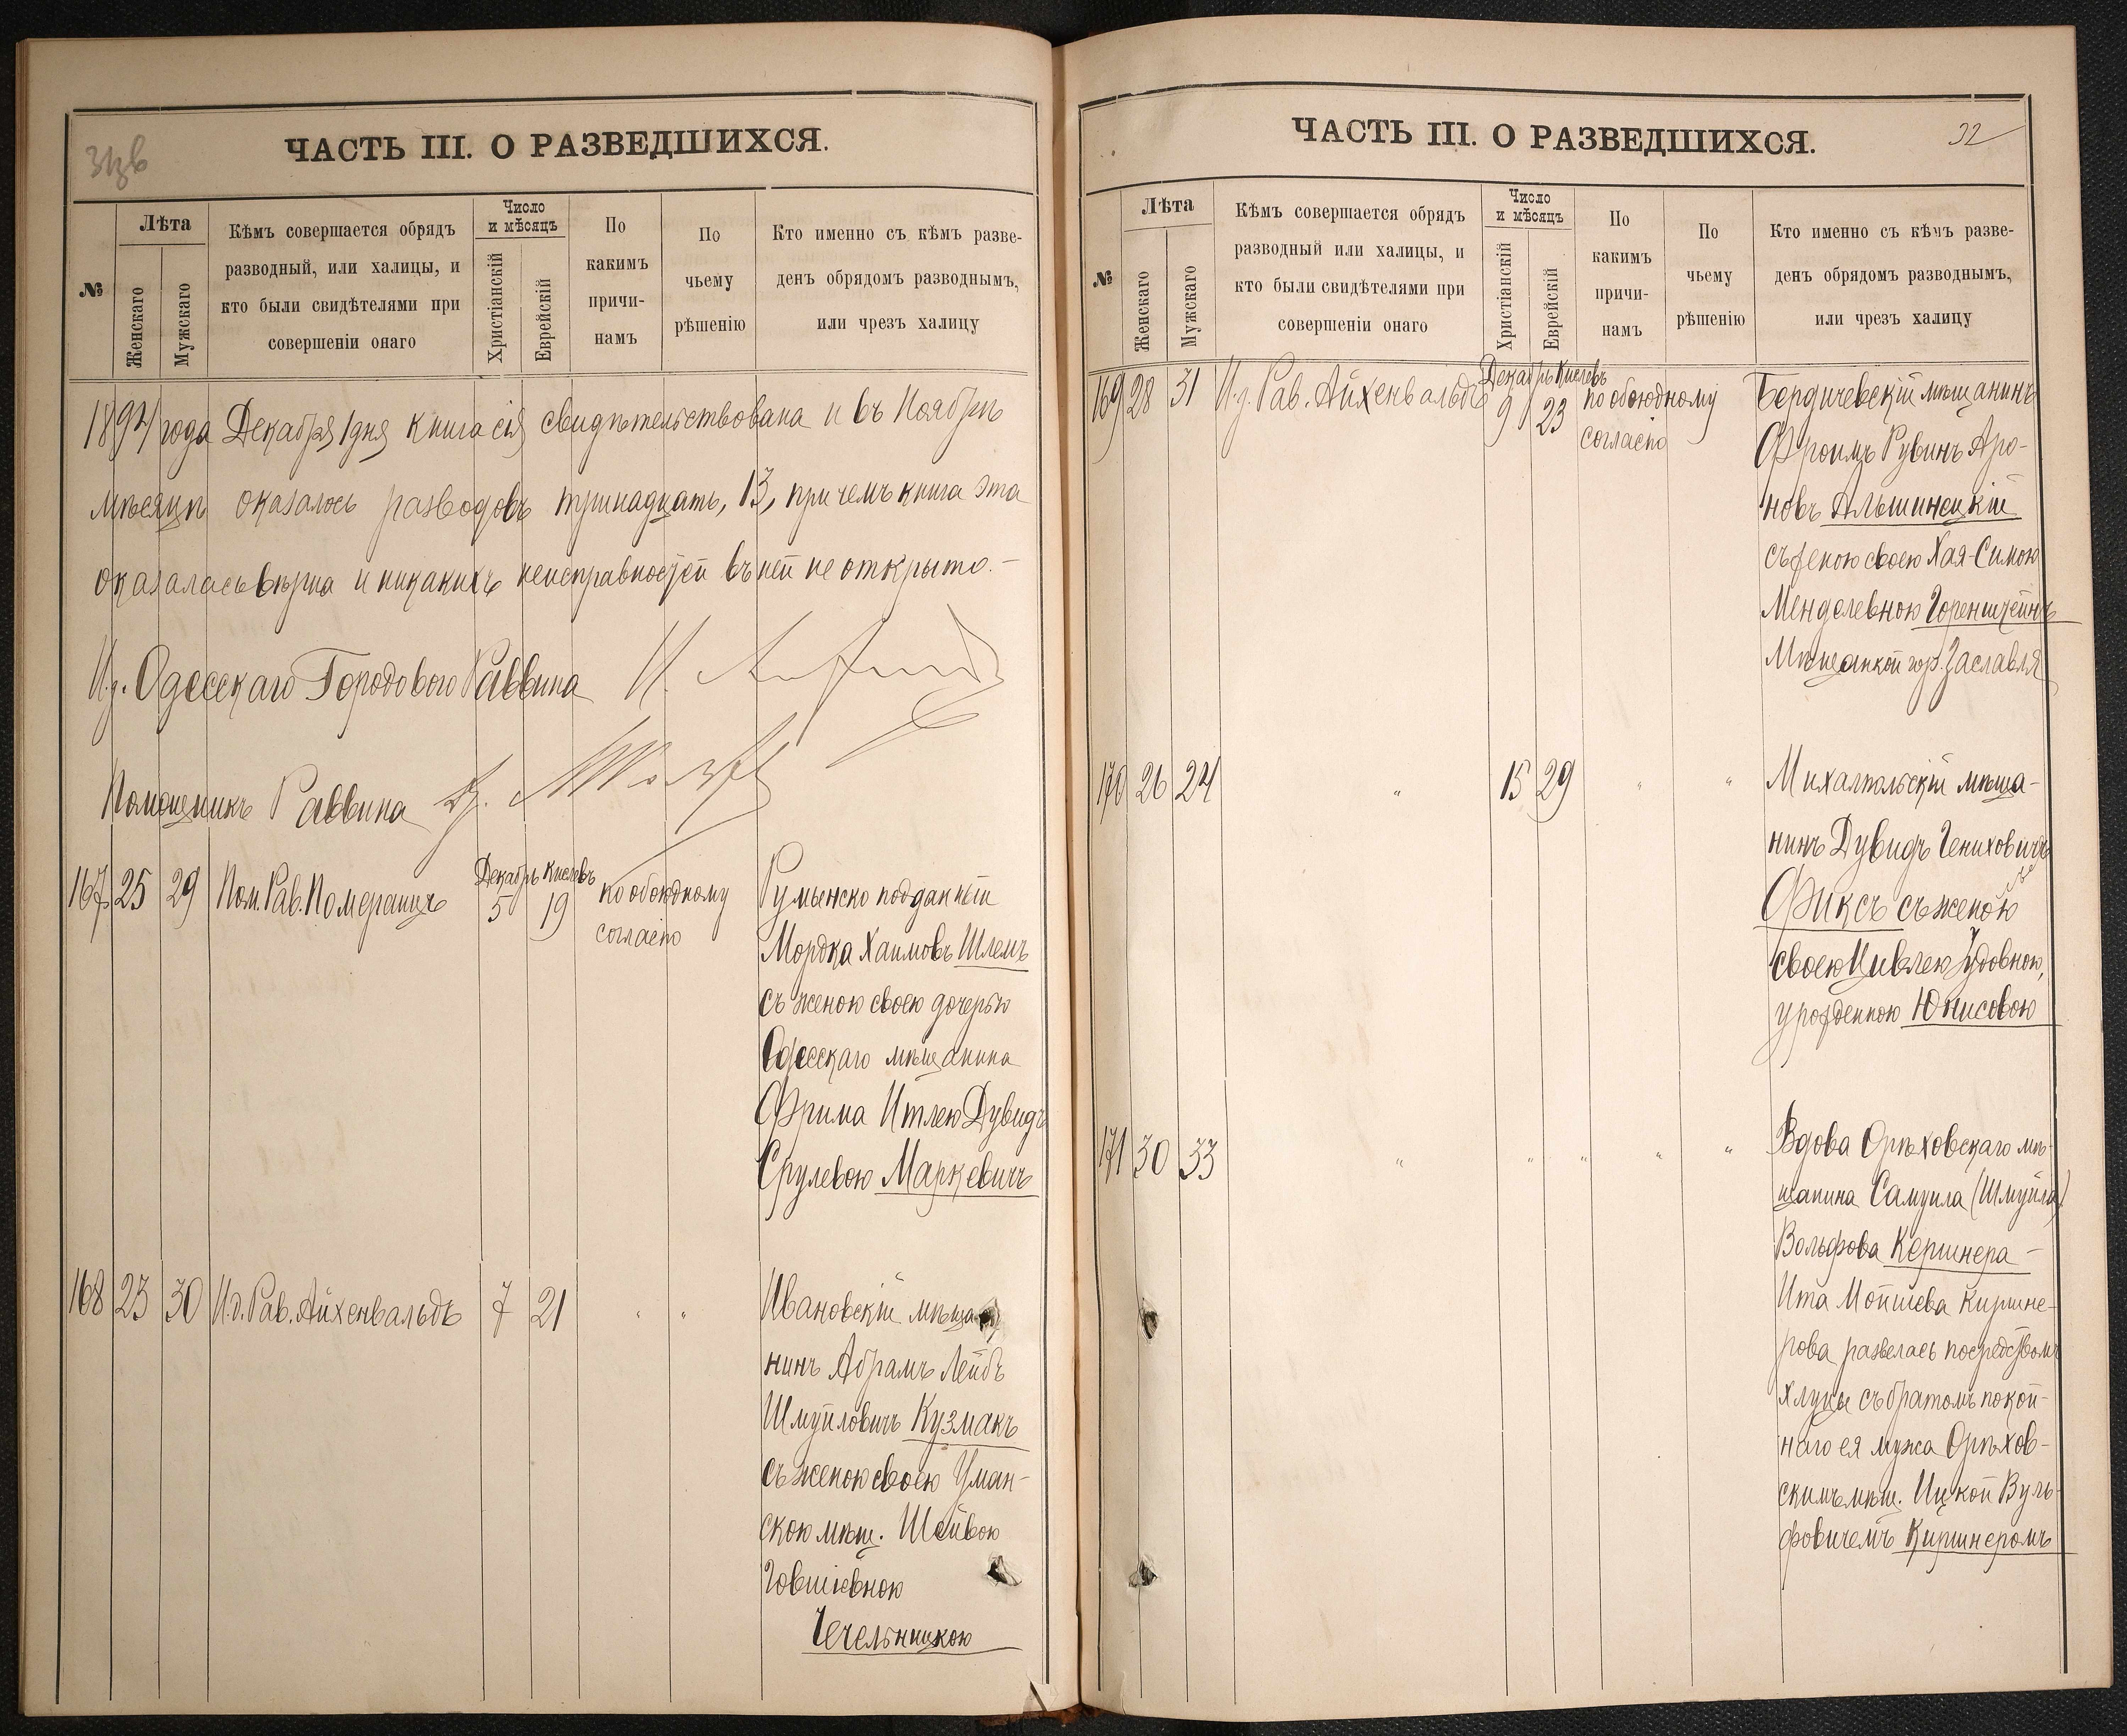 31зв
ЧАСТЬ III. О РАЗВЕДШИХСЯ.
№
Лѣта
Женскаго
Мужскаго
Кѣмъ совершается обрядъ
разводный, или халицы, и
кто были свидѣтелями при
совершеніи онаго
Число
и мѣсяцъ
Христіанскій
Еврейскій
По
какимъ
причи-
намъ
По
чьему
рѣшенію
Кто именно съ кѣмъ разве-
денъ обрядомъ разводнымъ,
или чрезъ халицу
1894 года Декабря 1 дня книга сія свидѣтельствована и въ Ноябрѣ
мѣсяцѣ оказалось разводовъ тринадцать, 13, при чемъ книга эта
оказалась вѣрна и никакихъ неисправностей въ ней не открыто. –
И.д. Одесскаго Городового Раввина
Помощникъ Раввина
167 25 29 Пом. Рав. Померанцъ Декабрь 5 Кислевъ 19 по обоюдному согласію
Румынско подданный
Мордка Хаимовъ Шлемъ
съ женою своею дочерью
Одесскаго мѣщанина
Фрима Итлею Дувидъ
Срулевою Маркевичъ
168 23 30 И.д. Рав. Айхенвальдъ 7 21 " "
Ивановскій мѣща-
нинъ Абрамъ Лейбъ
Шмуйловичъ Кузмакъ
съ женою своею Уман-
скою мѣщ. Шейвою
Іовшіевною
Чечельницкою
ЧАСТЬ III. О РАЗВЕДШИХСЯ.
32
№
Лѣта
Женскаго
Мужскаго
Кѣмъ совершается обрядъ
разводный или халицы, и
кто были свидѣтелями при
совершеніи онаго
Число
и мѣсяцъ
Христіанскій
Еврейскій
По
какимъ
причи-
намъ
По
чьему
рѣшенію
Кто именно съ кѣмъ разве-
денъ обрядомъ разводнымъ,
или чрезъ халицу
169 28 31 И.д. Рав. Айхенвальдъ Декабрь 9 Кислевъ 23 по обоюдному согласію
Бердичевскій мѣщанинъ
Фроимъ Рувинъ Аро-
новъ Альшинецкій
съ женою своею Хая-Симою
Менделевною Горенштейнъ
Мѣщанкой гор. Заславля
170 26 24 " 15 29 " "
Михалпольскій мѣща-
нинъ Дувидъ Гениховичъ
Фиксъ съ женою
своею Цивлею Іудовною,
урожденною Юнисовою
171 30 33 " " " " "
Вдова Орѣховскаго мѣ-
щанина Самуила (Шмуйла)
Вольфова Кершнера –
Ита Мошева Киршне-
рова развелась посредствомъ
хлуцы съ братомъ покой-
наго ея мужа Орѣхов-
скимъ мѣщ. Ицкой Вуль-
фовичемъ Киршнеромъ